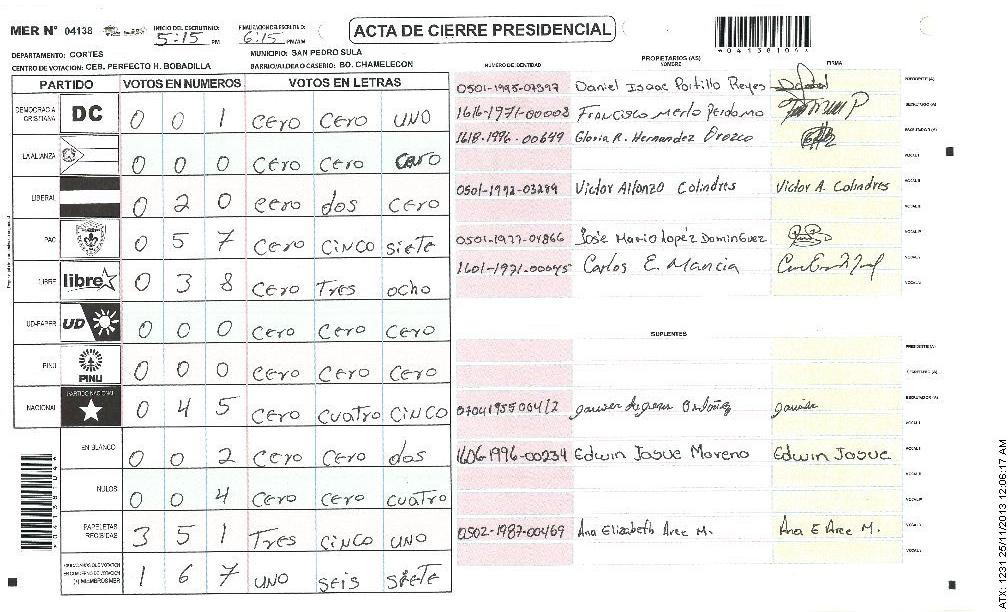 MER Nº 04138 INICIO DEL ESCRUTINIO: 5:15 PM FINALIZACION DEL ESCRUTINIO: 6:15 PM/AM ACTA DE CIERRE PRESIDENCIAL
DEPARTAMENTO: CORTES MUNICIPIO: SAN PEDRO SULA
CENTRO DE VOTACION: CEB. PERFECTO H. BOBADILLA BARRIO/ALDEA O CASERIO: BO. CHAMELECON
PARTIDO VOTOS EN NUMEROS VOTOS EN LETRAS
DEMOCRACIA CRISTIANA DC 0 0 1 cero cero uno
LA ALIANZA 0 0 0 cero cero cero
LIBERAL 0 2 0 cero dos cero
PAC 0 5 7 cero cinco siete
LIBRE libre 0 3 8 cero Tres ocho
UD-FAPER UD 0 0 0 cero cero cero
PINU PINU 0 0 0 cero cero cero
NACIONAL PARTIDO NACIONAL 0 4 5 cero cuatro cinco
EN BLANCO 0 0 2 cero cero dos
NULOS 0 0 4 cero cero cuatro
PAPELETAS RECIBIDAS 3 5 1 Tres cinco uno
1 6 7 uno seis siete
PROPIETARIOS (AS)
NUMERO DE IDENTIDAD NOMBRE FIRMA
Daniel Isaac Portillo Reyes PRESIDENTE (A)
1616-1971-00003 Francisco Merlo Perdomo SECRETARIO (A)
1618-1996-00649 Gloria R. Hernandez Orozco ESCRUTADOR (A)
VOCAL I
0501-1992-03289 Victor Alfonzo Colindres Victor A. Colindres VOCAL II
VOCAL III
0501-1977-04866 José Mario Lopéz Dominguez VOCAL IV
1601-1971-00045 Carlos E. Mancia VOCAL V
SUPLENTES
PRESIDENTE (A)
SECRETARIO (A)
ESCRUTADOR (A)
VOCAL I
1606-1996-00234 Edwin Josue Moreno Edwin Josue VOCAL II
0502-1987-00469 Ana Elizabeth Arce M. Ana E Arce M.
ATX: 1231 25/11/2013 12:06:17 AM